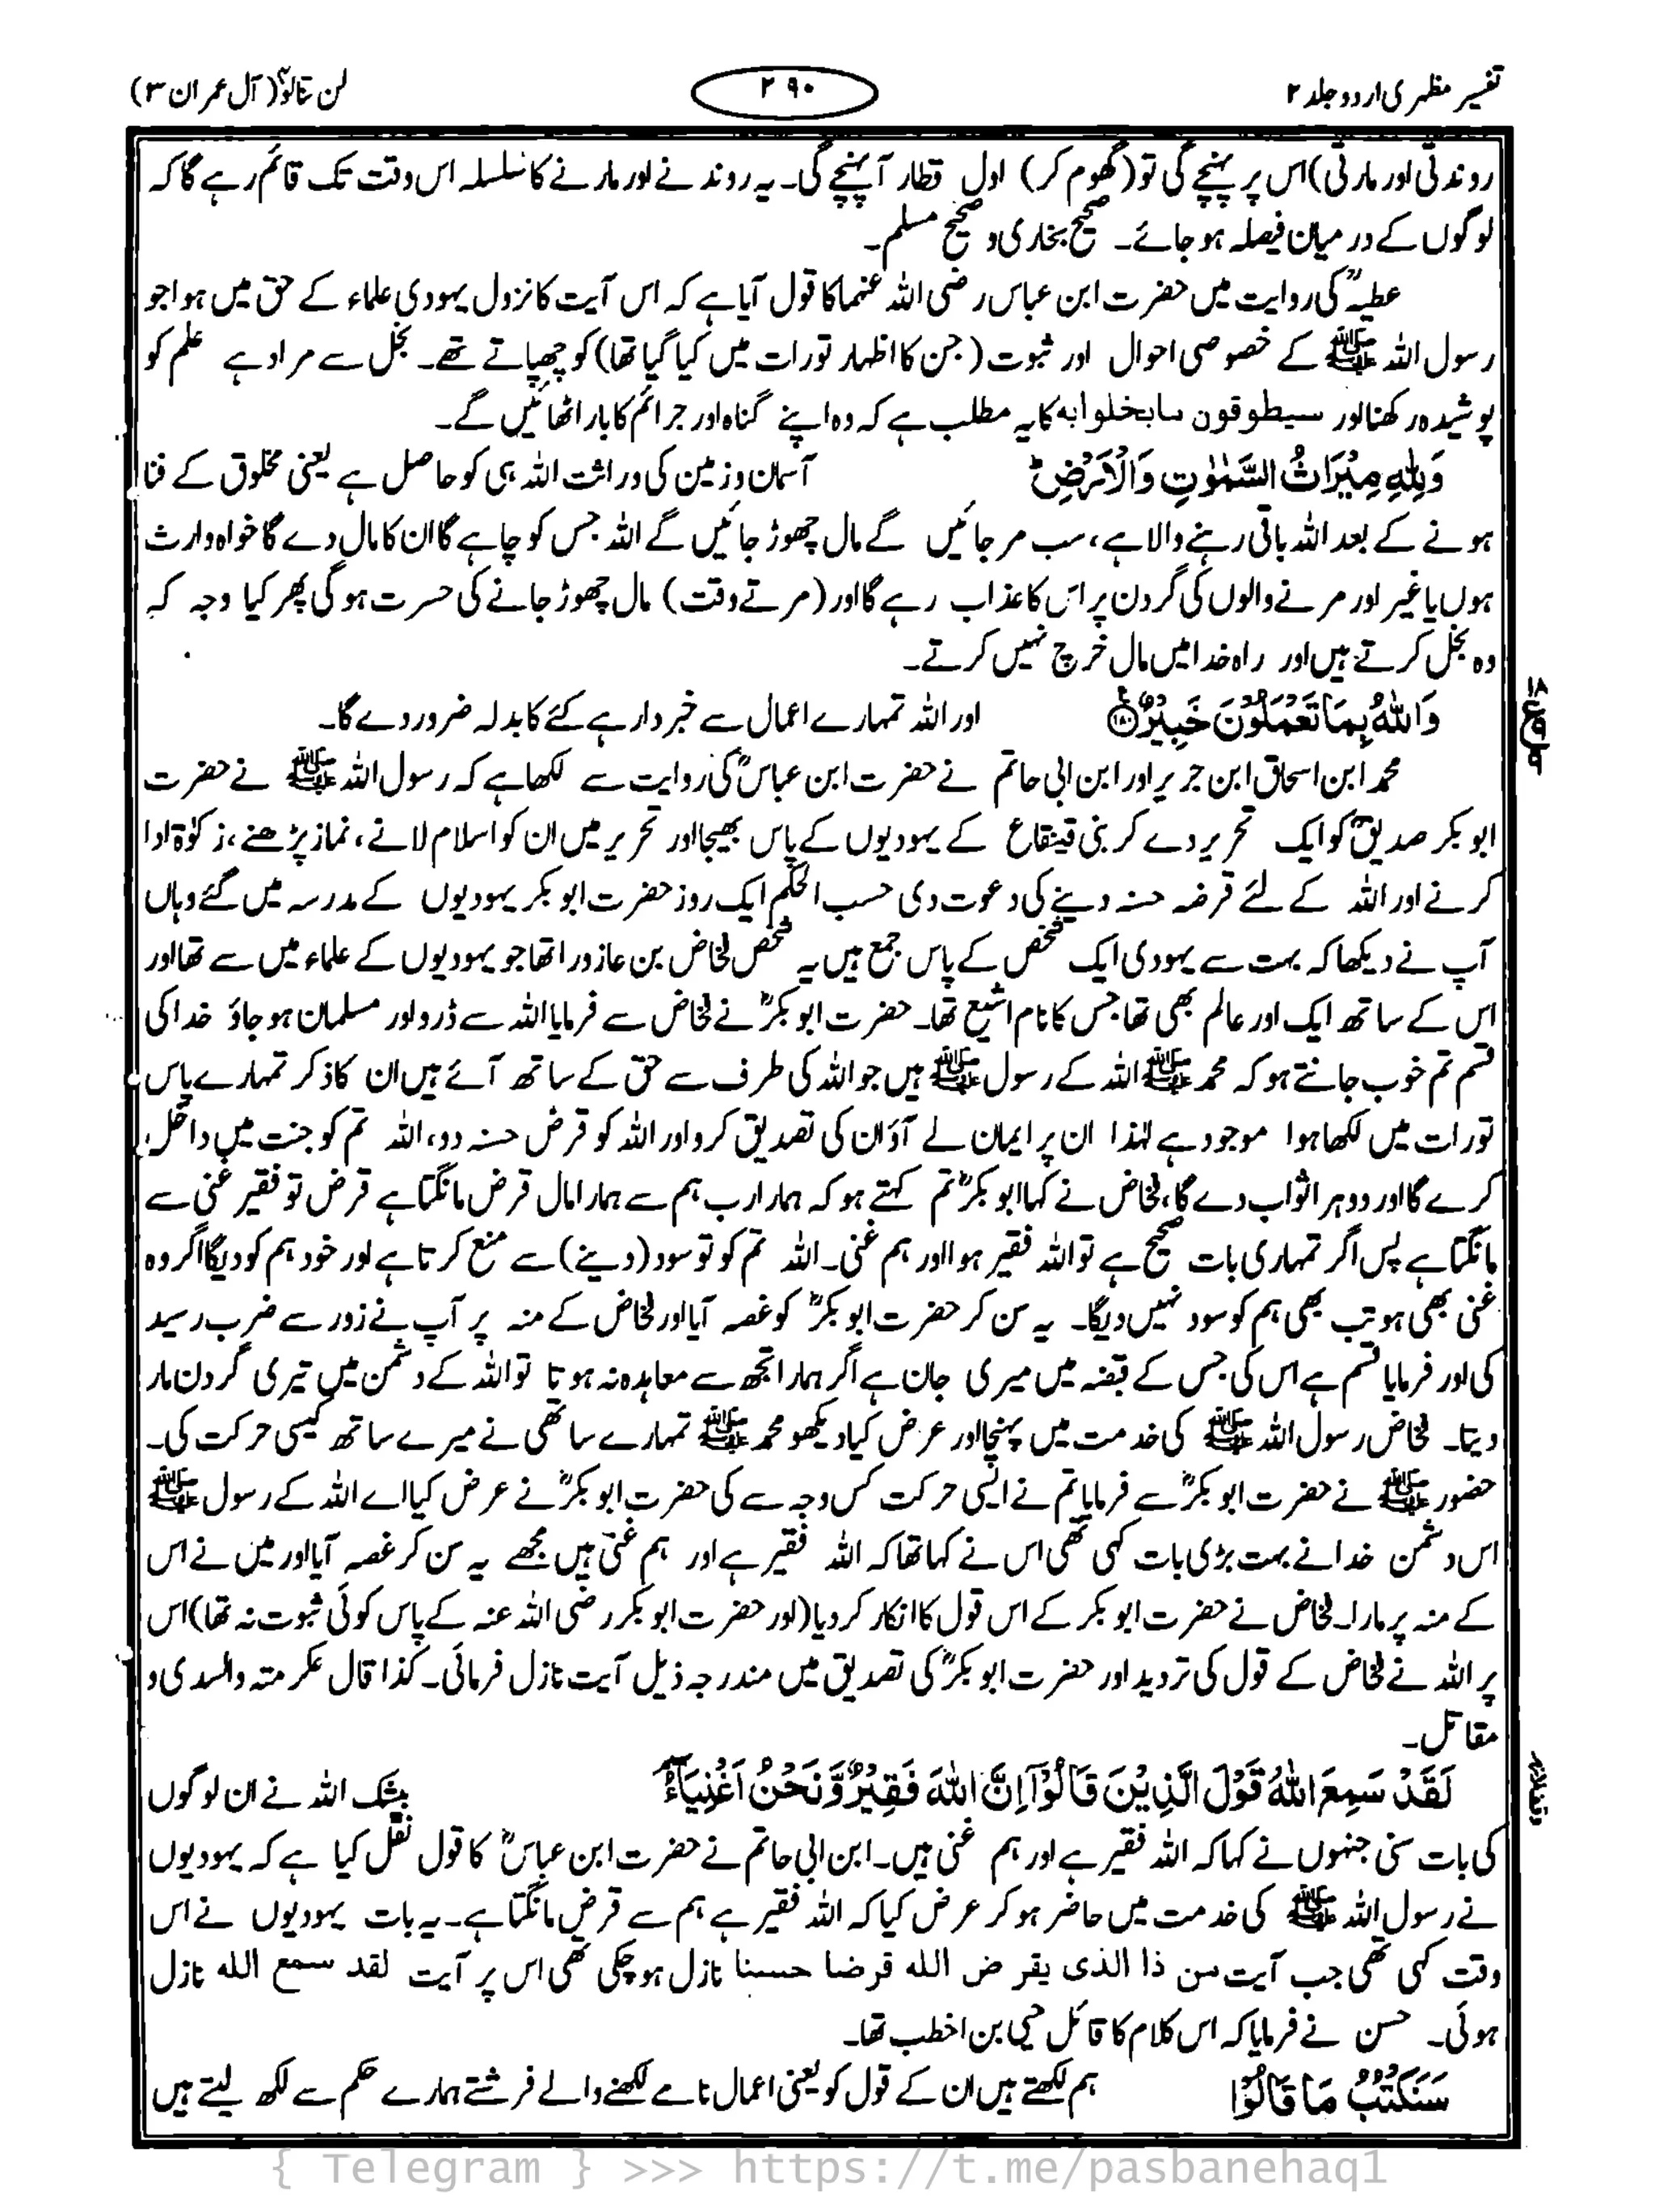 تفسیر مظہری اردو جلد ۲
۲۹۰
لن تنالوا (آل عمران ۳)
روندتی اور مارتی) اس پر پہنچے گی تو (گھوم کر) اول قطار آپہنچے گی۔ یہ روندنے اور مارنے کا سلسلہ اس وقت تک قائم رہے گا کہ
لوگوں کے درمیان فیصلہ ہو جائے۔ صحیح بخاری و صحیح مسلم۔
عطیہؒ کی روایت میں حضرت ابن عباس رضی اللہ عنہما کا قول آیا ہے کہ اس آیت کا نزول یہودی علماء کے حق میں ہوا جو
رسول اللہ ﷺ کے خصوصی احوال اور ثبوت (جن کا اظہار تورات میں کیا گیا تھا) کو چھپاتے تھے۔ بخل سے مراد ہے علم کو
پوشیدہ رکھنا اور سیطوقون مابخلوا بہ کا یہ مطلب ہے کہ وہ اپنے گناہ اور جرائم کا بار اٹھائیں گے۔
وَلِلّٰهِ مِيْرَاثُ السَّمٰوٰتِ وَالْاَرْضِ ؕ آسمان و زمین کی وراثت اللہ ہی کو حاصل ہے یعنی مخلوق کے فنا
ہونے کے بعد اللہ باقی رہنے والا ہے، سب مر جائیں گے مال چھوڑ جائیں گے اللہ جس کو چاہے گا ان کا مال دے گا خواہ وارث
ہوں یا غیر اور مرنے والوں کی گردن پر اس کا عذاب رہے گا اور (مرتے وقت) مال چھوڑ جانے کی حسرت ہوگی پھر کیا وجہ کہ
وہ بخل کرتے ہیں اور راہ خدا میں مال خرچ نہیں کرتے۔
وَاللّٰهُ بِمَا تَعْمَلُوْنَ خَبِيْرٌ ۱۸۰ اور اللہ تمہارے اعمال سے خبردار ہے کئے کا بدلہ ضرور دے گا۔
محمد ابن اسحاق ابن جریر اور ابن ابی حاتم نے حضرت ابن عباسؓ کی روایت سے لکھا ہے کہ رسول اللہ ﷺ نے حضرت
ابو بکر صدیقؓ کو ایک تحریر دے کر بنی قینقاع کے یہودیوں کے پاس بھیجا اور تحریر میں ان کو اسلام لانے، نماز پڑھنے، زکوٰۃ ادا
کرنے اور اللہ کے لئے قرضہ حسنہ دینے کی دعوت دی حسب الحکم ایک روز حضرت ابو بکر یہودیوں کے مدرسہ میں گئے وہاں
آپ نے دیکھا کہ بہت سے یہودی ایک شخص کے پاس جمع ہیں یہ شخص فخاض بن عازورا تھا جو یہودیوں کے علماء میں سے تھا اور
اس کے ساتھ ایک اور عالم بھی تھا جس کا نام اشیع تھا۔ حضرت ابو بکرؓ نے فخاض سے فرمایا اللہ سے ڈرو اور مسلمان ہو جاؤ خدا کی
قسم تم خوب جانتے ہو کہ محمد ﷺ اللہ کے رسول ﷺ ہیں جو اللہ کی طرف سے حق کے ساتھ آئے ہیں ان کا ذکر تمہارے پاس
تورات میں لکھا ہوا موجود ہے لہٰذا ان پر ایمان لے آؤ ان کی تصدیق کرو اور اللہ کو قرض حسنہ دو، اللہ تم کو جنت میں داخل
کرے گا اور دوہرا ثواب دے گا، فخاض نے کہا ابو بکرؓ تم کہتے ہو کہ ہمارا رب ہم سے ہمارا مال قرض مانگتا ہے قرض تو فقیر غنی سے
مانگتا ہے پس اگر تمہاری بات صحیح ہے تو اللہ فقیر ہوا اور ہم غنی۔ اللہ تم کو تو سود (دینے) سے منع کرتا ہے اور خود ہم کو دیگا اگر وہ
غنی بھی ہو تب بھی ہم کو سود نہیں دیگا۔ یہ سن کر حضرت ابو بکرؓ کو غصہ آیا اور فخاض کے منہ پر آپ نے زور سے ضرب رسید
کی اور فرمایا قسم ہے اس کی جس کے قبضہ میں میری جان ہے اگر ہمارا تجھ سے معاہدہ نہ ہوتا تو اللہ کے دشمن میں تیری گردن مار
دیتا۔ فخاض رسول اللہ ﷺ کی خدمت میں پہنچا اور عرض کیا دیکھو محمد ﷺ تمہارے ساتھی نے میرے ساتھ کیسی حرکت کی۔
حضور ﷺ نے حضرت ابو بکرؓ سے فرمایا تم نے ایسی حرکت کس وجہ سے کی حضرت ابو بکرؓ نے عرض کیا اے اللہ کے رسول ﷺ
اس دشمن خدا نے بہت بڑی بات کہی تھی اس نے کہا تھا کہ اللہ فقیر ہے اور ہم غنی ہیں مجھے یہ سن کر غصہ آیا اور میں نے اس
کے منہ پر مارا۔ فخاض نے حضرت ابو بکر کے اس قول کا انکار کر دیا (اور حضرت ابو بکر رضی اللہ عنہ کے پاس کوئی ثبوت نہ تھا) اس
پر اللہ نے فخاض کے قول کی تردید اور حضرت ابو بکرؓ کی تصدیق میں مندرجہ ذیل آیت نازل فرمائی۔ کذا قال عکرمتہ والسدی و
مقاتل۔
لَقَدْ سَمِعَ اللّٰهُ قَوْلَ الَّذِيْنَ قَالُوْٓا اِنَّ اللّٰهَ فَقِيْرٌ وَّنَحْنُ اَغْنِيَآءُ بیشک اللہ نے ان لوگوں
کی بات سنی جنہوں نے کہا کہ اللہ فقیر ہے اور ہم غنی ہیں۔ ابن ابی حاتم نے حضرت ابن عباسؓ کا قول نقل کیا ہے کہ یہودیوں
نے رسول اللہ ﷺ کی خدمت میں حاضر ہو کر عرض کیا کہ اللہ فقیر ہے ہم سے قرض مانگتا ہے۔ یہ بات یہودیوں نے اس
وقت کہی تھی جب آیت من ذا الذی یقرض اللہ قرضا حسنا نازل ہو چکی تھی اس پر آیت لقد سمع اللہ نازل
ہوئی۔ حسن نے فرمایا کہ اس کلام کا قائل حیی بن اخطب تھا۔
سَنَكْتُبُ مَا قَالُوْا ہم لکھتے ہیں ان کے قول کو یعنی اعمال نامے لکھنے والے فرشتے ہمارے حکم سے لکھ لیتے ہیں
{ Telegram } >>> https://t.me/pasbanehaq1